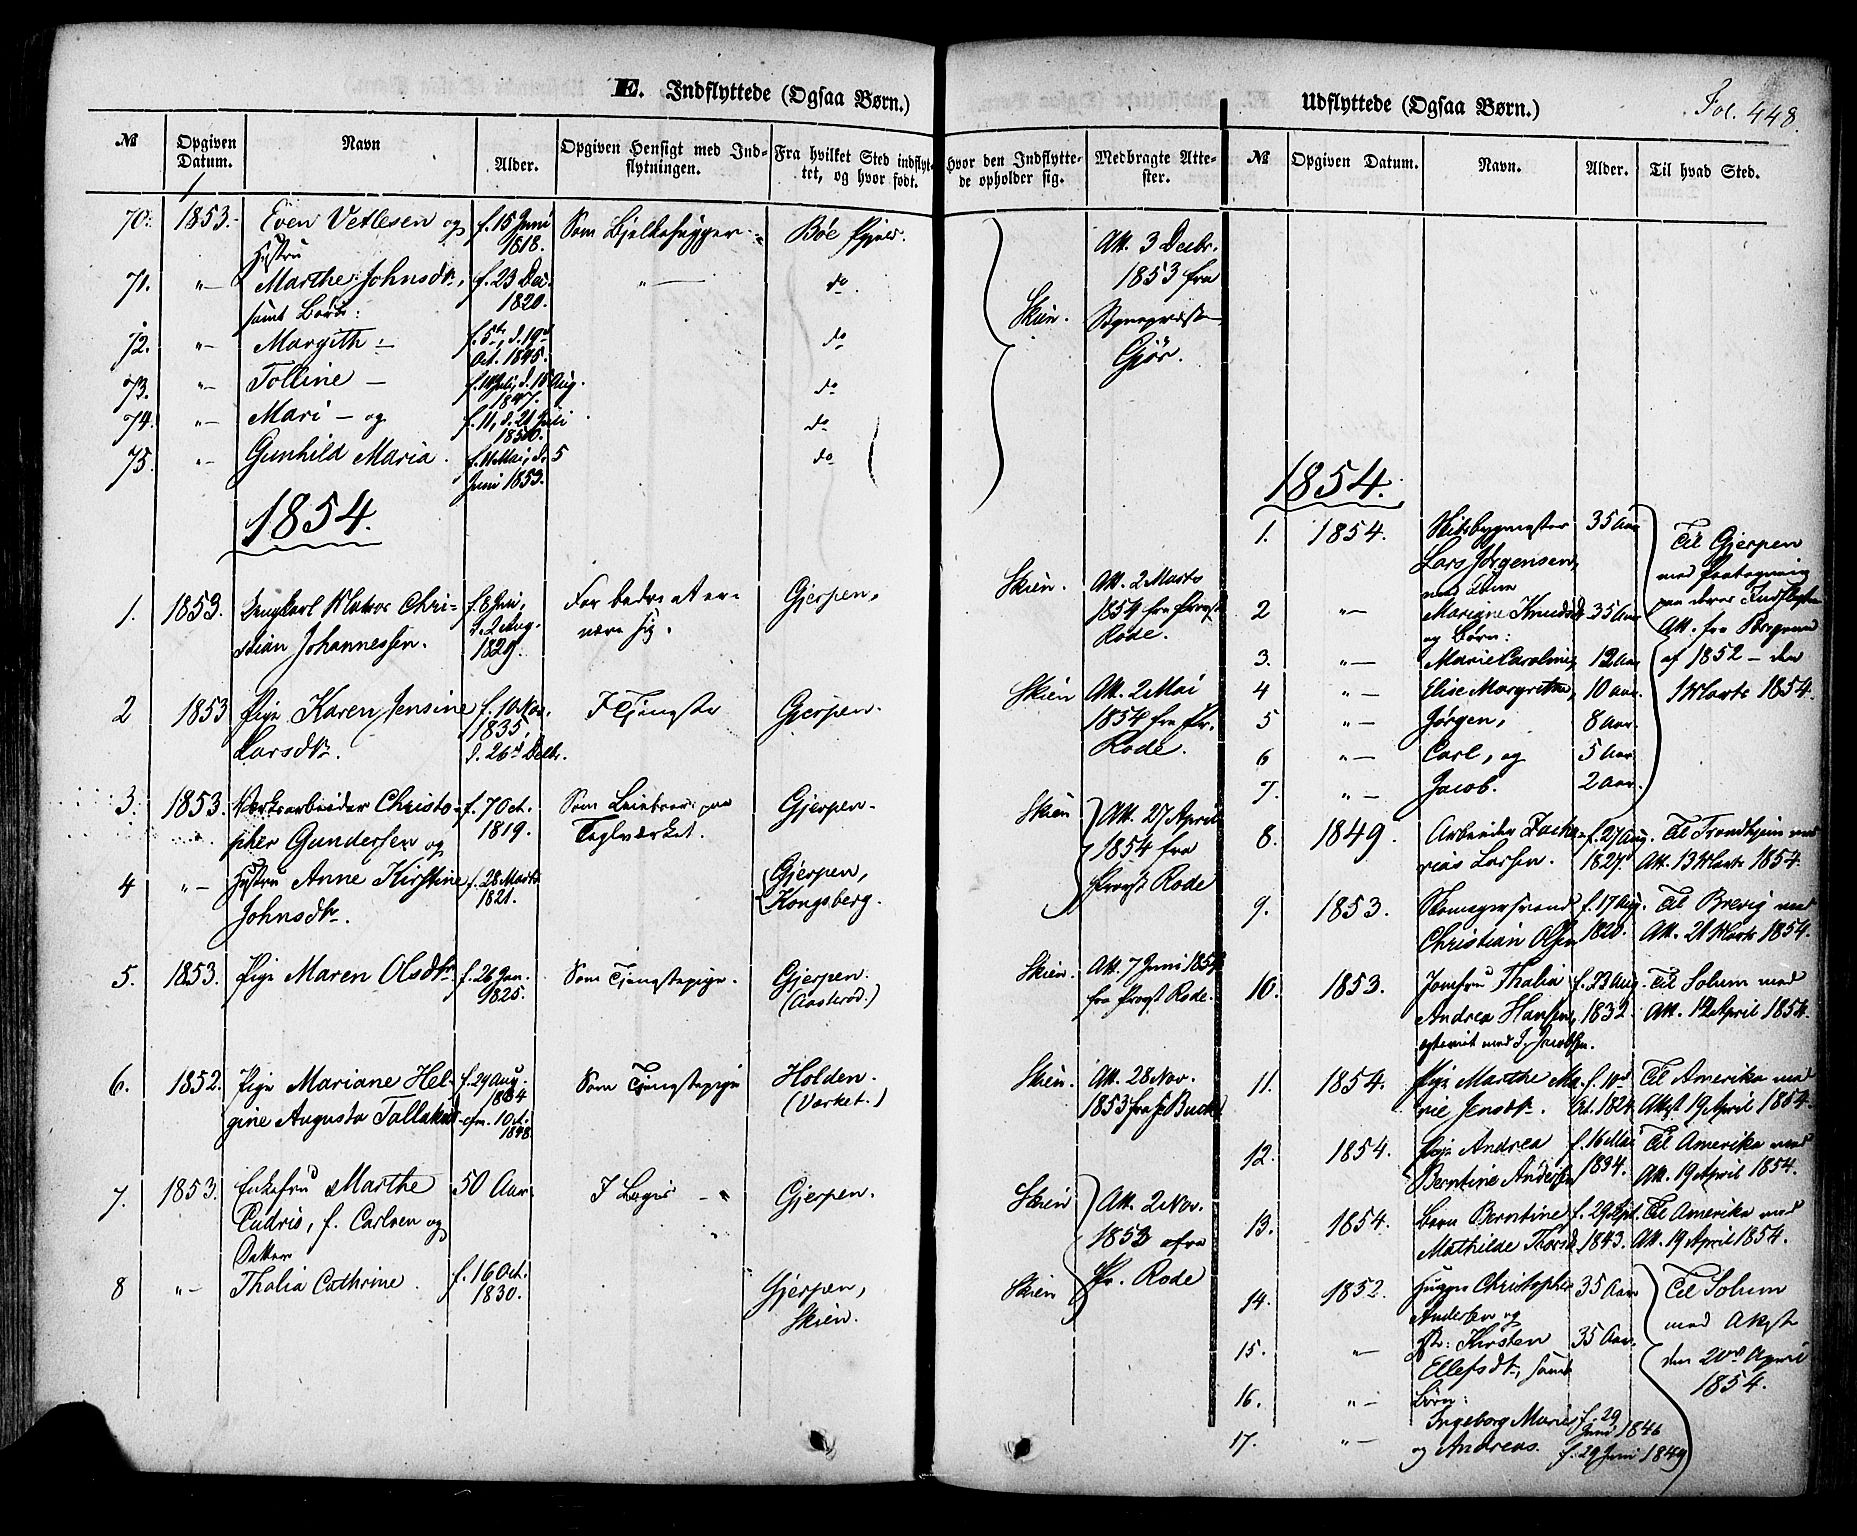 E. Indflyttede (Ogsaa Børn.)
№
Opgiven Datum.
Navn
Alder.
Opgiven Hensigt med Indflytningen.
Fra hvilket Sted indflyttet, og hvor født.
Hvor den Indflyttede opholder sig.
Medbragte Attester.
70. 1853. Even Vetlesen og f. 15 Juni Som Bjelkehugger Bøe Pgjeld.
Hustru 1818.
71. "— Marthe Johnsdr., f. 23 Dec. "— do
samt Børn: 1820.
72. "— Margith — f. 5te, d. 19de do
Oct. 1845.
73. "— Tolline — d. 15 Aug. do
1847.
74. "— Mari — og f. 11, d. 21 Juli do
1850.
75. "— Gunhild Maria. f. 11 Mai, d. 5 do
Juni 1853.
Skien.
Att. 3 Decbr.
1853 fra
Sognepræsten
Gjør.
1854.
1. 1853. Matros Chri- For bedre at er- Gjerpen, Skien. Att. 2 Marts
stian Johannessen. d. 2 Aug. nære sig. 1854 fra Provst
1829. Rode.
2 1853 Pige Karen Jensine f. 10 Nov. I Tjeneste Gjerpen. Skien Att. 2 Mai
Larsdr. 1835, 1854 fra Pr.
d. 26d Decbr. Rode.
3. 1853. Værksarbeider Christo- f. 7 Oct. Som Gjerpen. Skien Att. 27 April
pher Gundersen og 1819. Teglværket. 1854 fra
4 "— Hustru Anne Kirstine f. 28 Marts Gjerpen, Provst Rode
Johnsdr. 1821. Kongsberg.
5. 1853. Pige Maren Olsdr. f. 26 Jan. Som Tjenestepige. Gjerpen. Skien. Att. 7 Juni 1854
1825. (Aasterød.) fra Provst Rode.
6. 1852. Pige Mariane Hel- f. 29 Aug. Som Tjenestepige Holden. Skien. Att. 28 Nov.
gine Augusta Tallaksd. cfm. 1 Oct. (Værket.) 1853 fra
1848.
7. 1853. Enkefru Marthe 50 Aar I Logis Gjerpen. Skien Att. 2 Nov.
Cudrio, f. Carlsen og 1853 fra
Datter Pr. Rode
8 "— Thalia Cathrine. f. 16 Oct. Gjerpen, Skien
1830. Skien.
Udflyttede (Ogsaa Børn.)
Fol. 448.
№
Opgiven Datum.
Navn.
Alder.
Til hvad Sted.
1854.
1. 1854. Skibsbygmester 35 Aar
Lars Jørgensen,
2 "— Mariane Knudsd. 35 Aar
og Børn:
3. "— Marie Caroline, 12 Aar
4 "— Elise Margrethe, 10 Aar
5 "— Jørgen, 8 Aar
6 "— Carl, og 5 Aar
7. "— Jacob. 2 Aar.
Til Gjerpen
med Paategning
paa deres Indflytn.
Att. fra
af 1852 — den
1 Marts 1854.
8. 1849. Arbeider Zacha- f. 27 Aug. Til Trondhjem med
rias Larsen. 1827. Att. 13 Marts 1854.
9. 1853. Skomagersvend f. 17 Aug. Til Brevig med
Christian Olsen 1820. Att. 21 Marts 1854.
10. 1853. Jomfru Thalia f. 23 Aug. Til Solum med
Andrea Hansen, 1832. Att. 12 April 1854.
11. 1854. Pige Marthe Ma- Til Amerika med
rie Jensdr. Oct. 1824. Attest 19 April 1854.
12. 1854. Pige Andrea f. 16 Mai Til Amerika med
Berntine Andersen 1834. Att. 19 April 1854.
13. 1854. Barn Berntine f. 29 Spt. Til Amerika med
Mathilde Thorsd. 1843. Att. 19 April 1854.
14. 1852. Christopher 35 Aar
Andersen og
15. "— Hst: Kirsten 35 Aar.
Ellefsdr., samt
16. "— Børn:
Ingeborg Marie f. 29
Juni 1846
17. "— og Andreas. f. 29 Juni 1849
Til Solum
med Attest
den 20de April
1854.